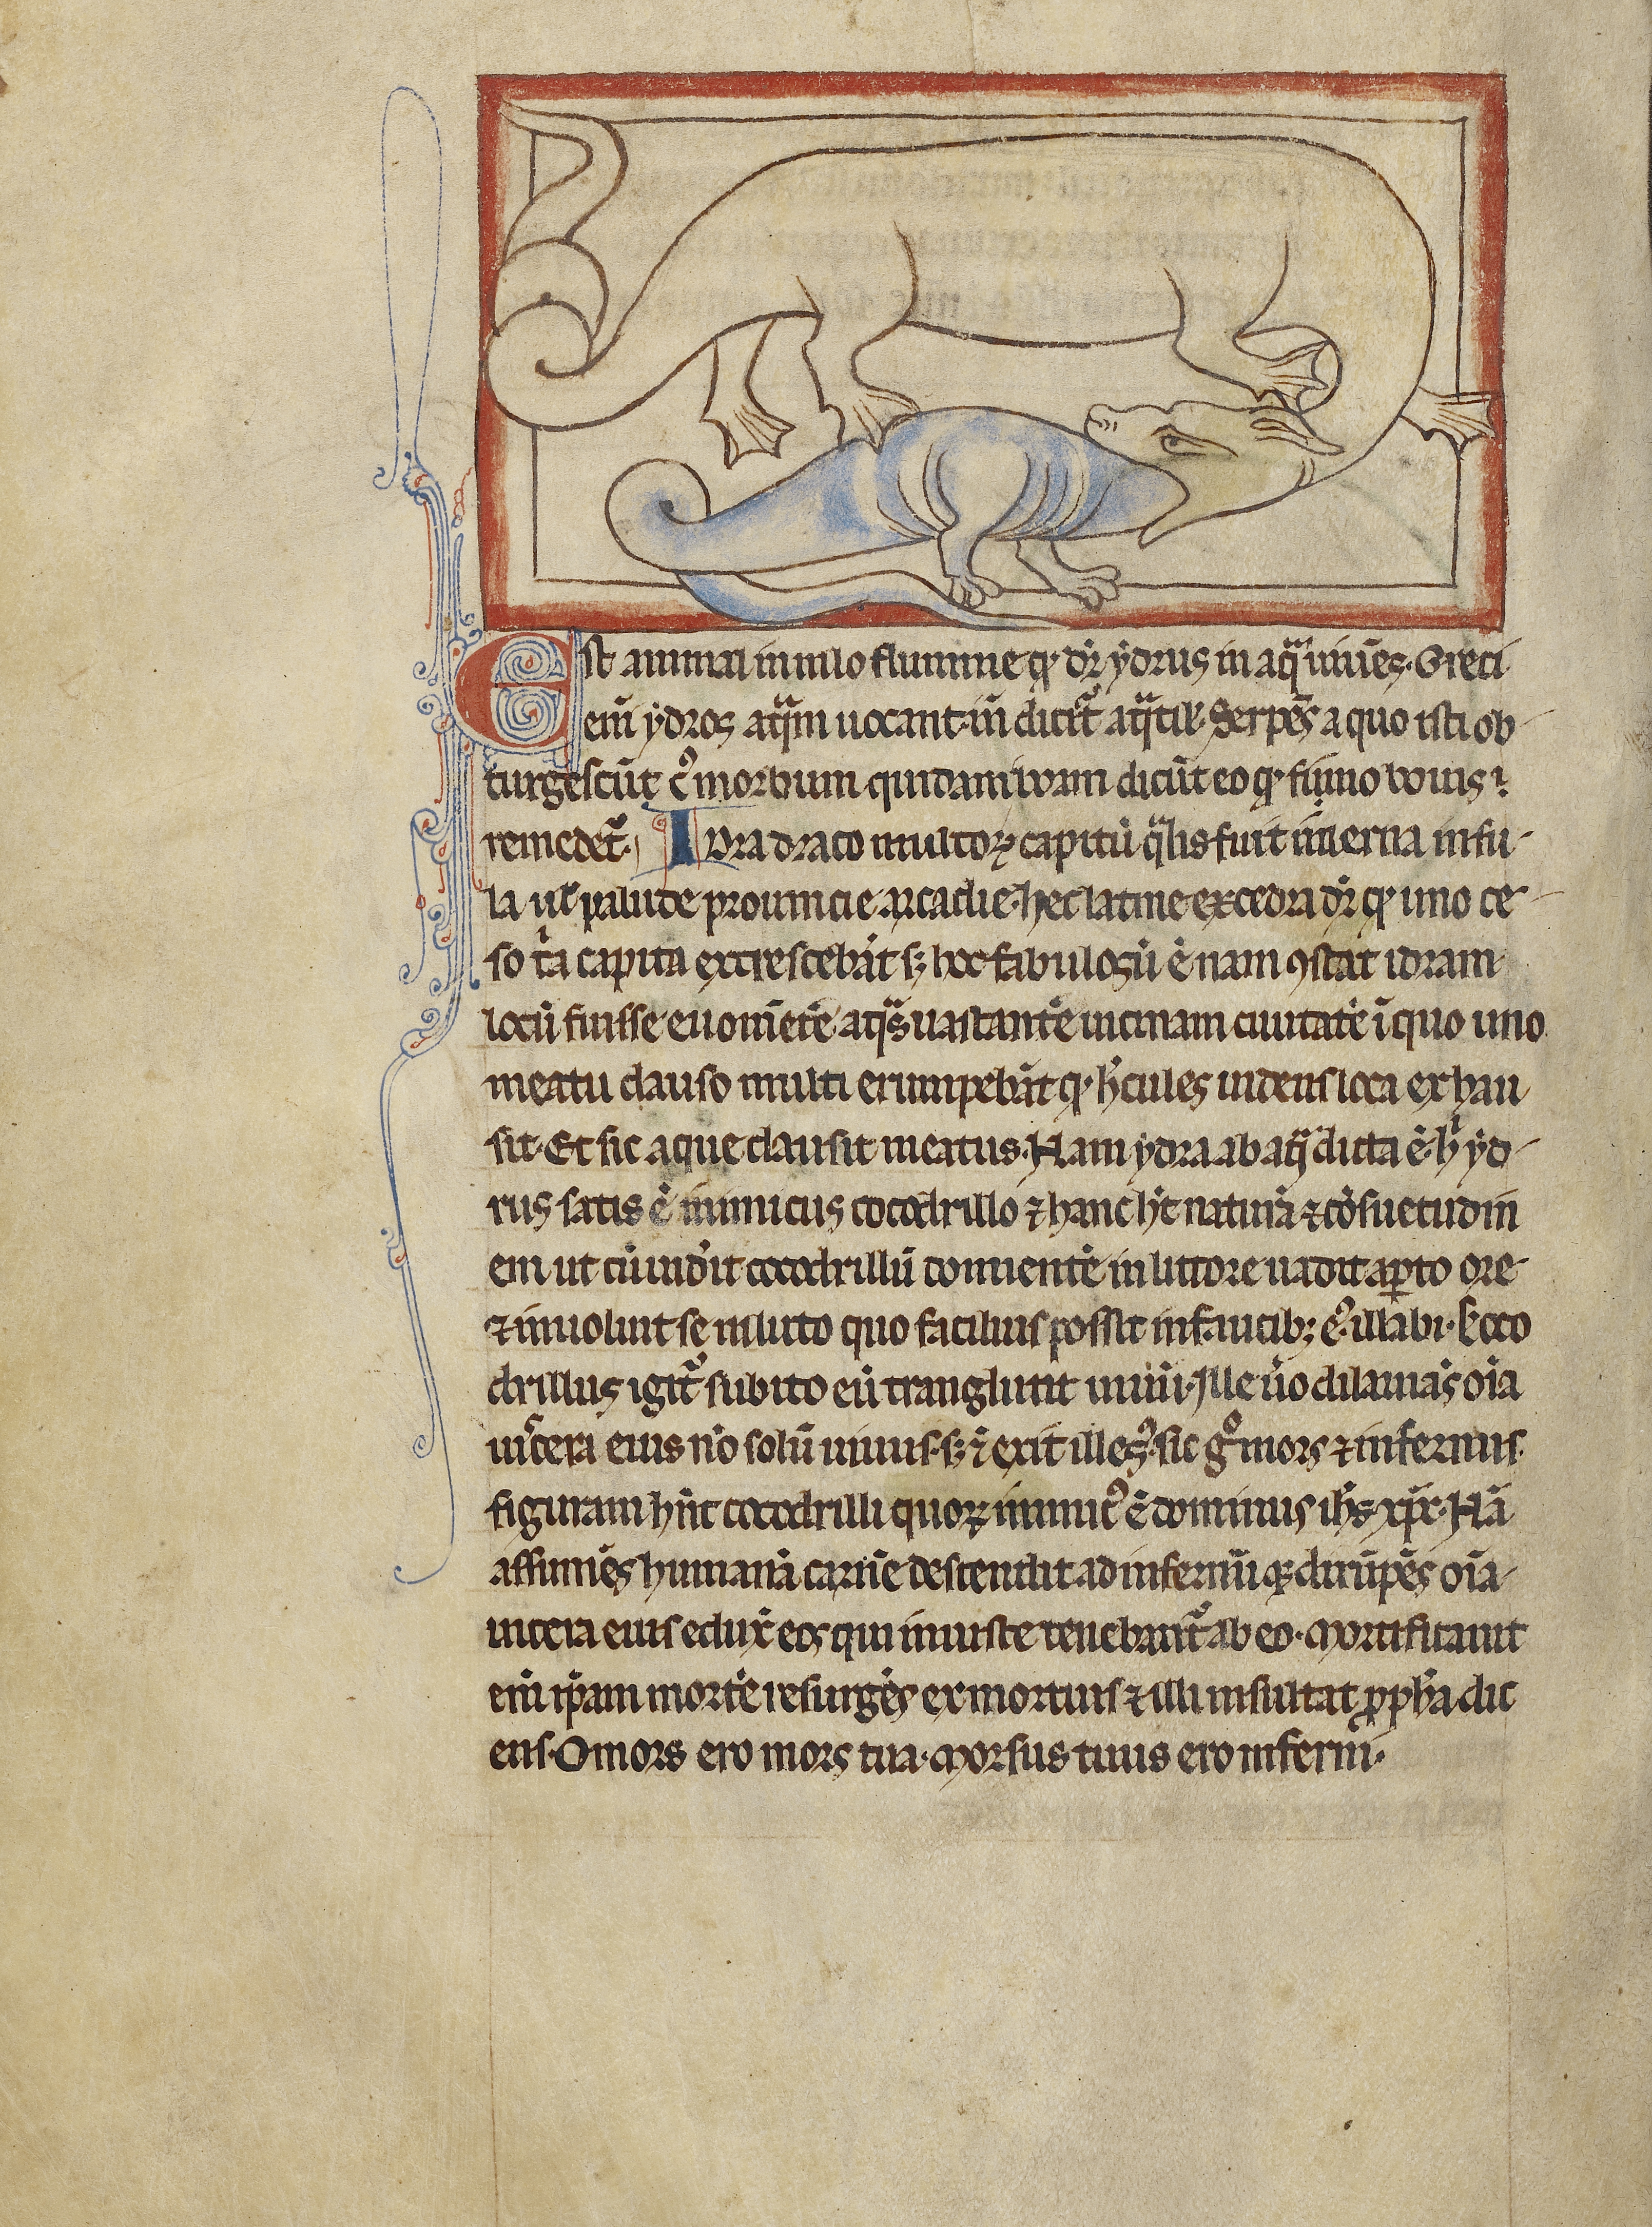 Est animal in nilo flumine qͥ dr̄ ydrus in aqᵃ uiuēs. Greci
em̄ ydros aqᵃm uocant. in̄ dicitᷣ aqᵃtilꝭ. Serpēs a quo icti ob
turgescūt cꝰ morbum quidam boam dicūt eo qͥ fimo bouis ⁊
remedetᷣ. Idra draco multoꝝ capitū qᵃlis fuit in lerna insu
la uꝉ palude prouincie arcadie. hec latine excedra dr̄ qͥ uno ce
so tͥa capita excrescebāt sꝫ hoc fabulosū ē nam ꝯstat idram
locū fuisse euomētē aqᵃs uastantē uicinam ciuitatē ī quo uno
meatu clauso multi erumpebāt qͥ hͨcules uidens loca exhau
sit. Et sic aque clausit meatus. Nam ydra ab aqᵃ dicta ē. h yd
rus satis ē inimicus cocodrillo ⁊ hanc hͭ naturā ⁊ cōsuetudin
em ut cū uid'it cocodrillū dormientē in littore uadit apꝑto ore
⁊ inuoluit se in luto quo facilius possit in faucibꝫ eꝰ. illabi. Coco
drillus igitᷣ subito eū transglutit uiuū. Ille ūo dilaniās oīa
uiscera eius nō solū uiuus. sꝫ ⁊ exit illesꝰ. sic gͦ mors ⁊ infernus
figuram hn̄t cocodrilli quoꝝ inimicꝰ ē dominus ihs xp̄c. Nā
assumēs humanā carnē descendit ad infernū qꝫ dirūpēs oīa
uicera eius eduxͭ eos qui iniuste tenebantᷣ ab eo. Mortificauit
em̄ ip̄am mortē resurgēs ex mortuis ⁊ illi insultat ꝓph̄a dic
ens. O mors ero mors tua. Morsus tuus ero inferni.